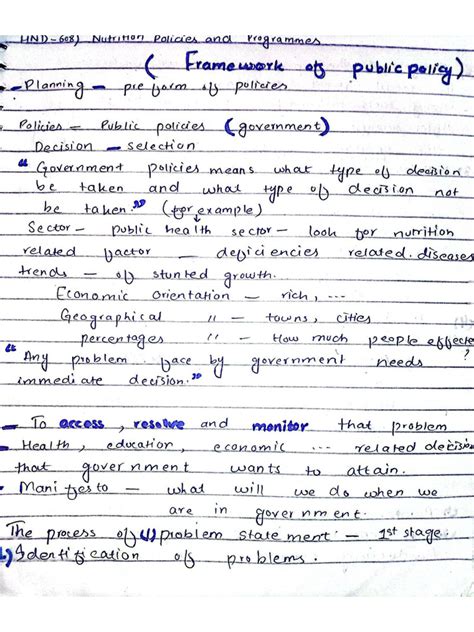 HND-608) Nutrition Policies and Programmes
( Framework of public policy)
- Planning - pre form of policies
Policies - Public policies (government)
Decision - selection
" Government policies means what type of decision
be taken and what type of decision not
be taken." (for example)
Sector - public health sector - look for nutrition
related factor - deficiencies related diseases
trends - of stunted growth.
Economic Orientation - rich, ...
Geographical " - towns, cities
percentages " - How much people effecte
" Any problem face by government needs
immediate decision."
- To access, resolve and monitor that problem
- Health, education, economic ... related decision
that government wants to attain.
- Manifesto - what will we do when we
are in government.
The process of (1) problem statement - 1st stage.
Identification of problems.